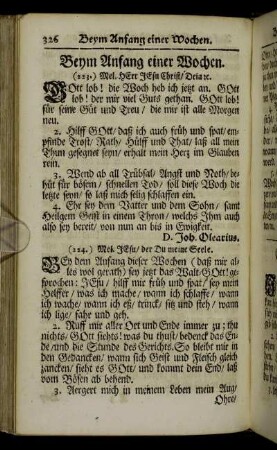 326 Beym Anfang einer Wochen.
Beym Anfang einer Wochen.
(223.) Mel. HErr JEsu Christ/ Dein ꝛc.
GOtt lob! die Woch heb ich jetzt an. GOtt
lob! der mir viel Guts gethan. GOtt lob!
für seine Güt und Treu/ die mir ist alle Morgen
neu.
2. Hilff GOtt/ daß ich auch früh und spat/ em-
pfinde Trost/ Rath/ Hülff und That/ laß all mein
Thun gesegnet seyn/ erhalt mein Herz im Glauben
rein.
3. Wend ab all Trübsal/ Angst und Noth/ be-
hüt für bösen/ schnellen Tod/ soll diese Woch die
letzte seyn/ so laß mich selig schlaffen ein.
4. Ehr sey dem Vatter und dem Sohn/ samt
Heilgem Geist in einem Thron/ welches Ihm auch
also sey bereit/ von nun an bis in Ewigkeit.
D. Joh. Olearius.
(224.) Mel. JEsu/ der Du meine Seele.
BEy dem Anfang dieser Wochen (daß mir al-
les wol gerath) sey jetzt das Walt-GOtt! ge-
sprochen: JEsu/ hilf mir früh und spat/ sey mein
Helffer/ was ich mache/ wann ich schlaffe/ wann
ich wache/ wann ich eß/ trinck/ sitz und steh/ wann
ich lige/ sahr und geh.
2. Ruff mir aller Ort und Ende immer zu: thu
nichts/ GOtt siehts! was du thust/ bedenck das En-
de/ und die Stunde des Gerichts. So bleibt mir in
den Gedancken/ wann sich Geist und Fleisch gleich
zancken/ sieht es GOtt/ und kommt dein End/ laß
vom Bösen ab behend.
3. Aergert mich in meinem Leben mein Aug/
Ohre/